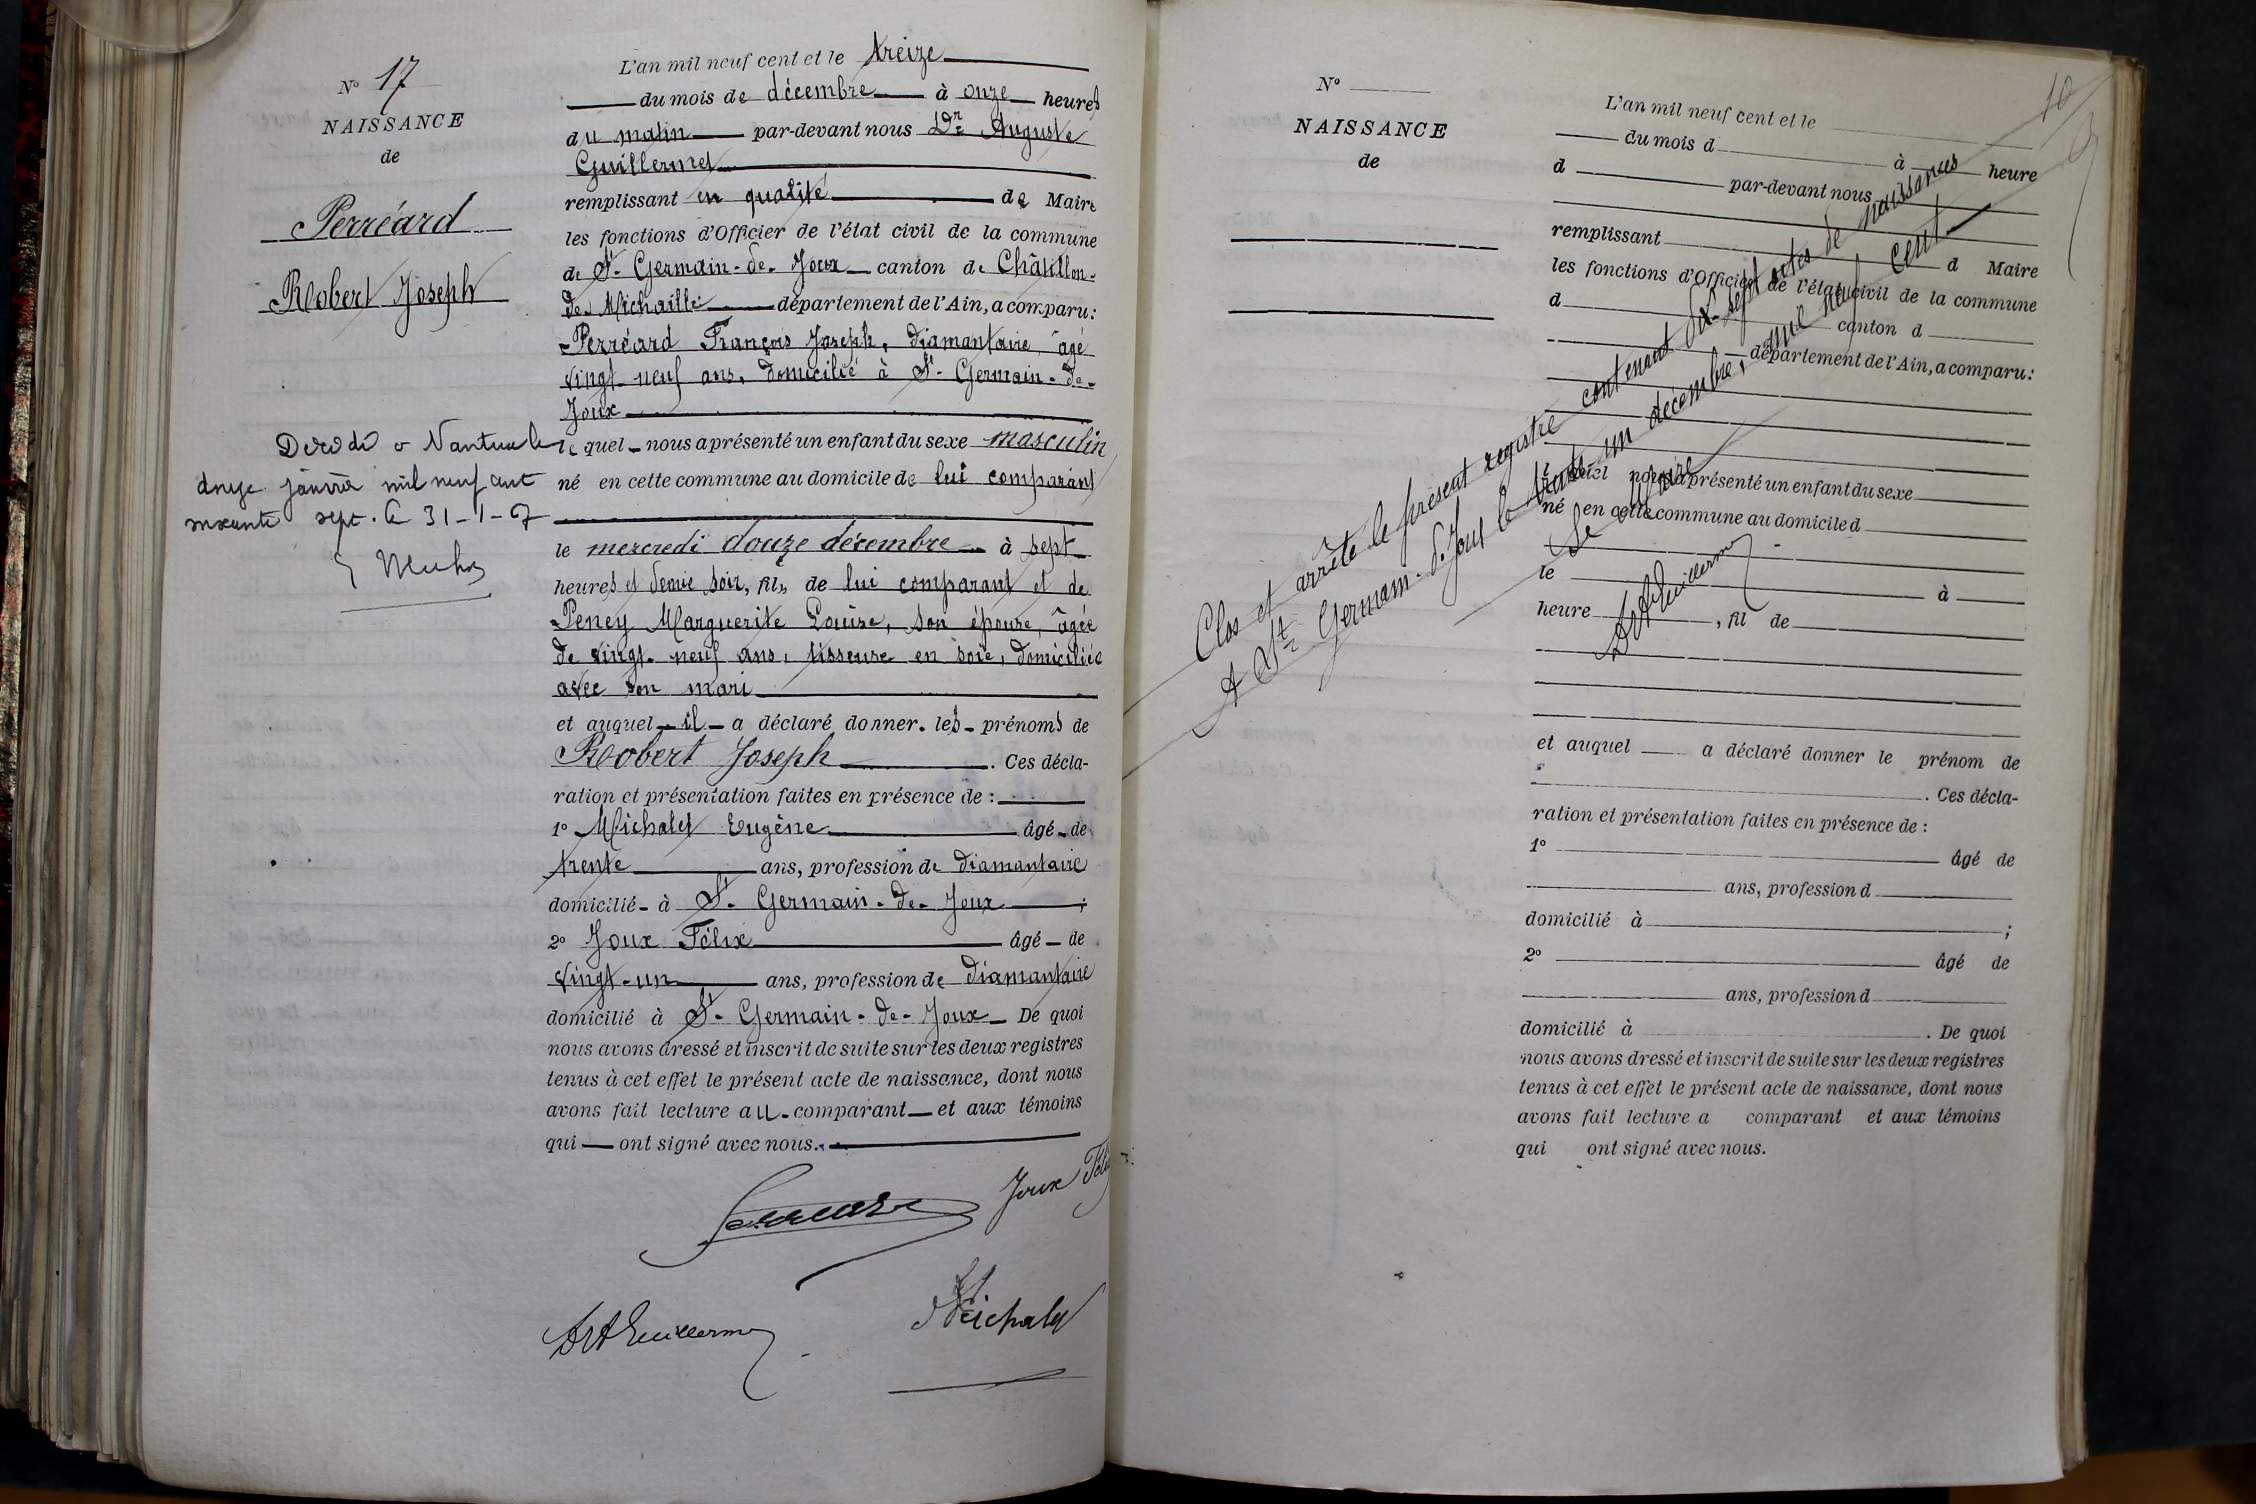 N° 17
NAISSANCE
de
Perréard
Robert Joseph
Décédé à Nantua le
onze janvier mil neuf cent
soixante sept. le 31-1-67
L'an mil neuf cent et le treize
du mois de décembre à onze heures
du matin par-devant nous Dr Auguste
Guillermet
remplissant en qualité de Maire
les fonctions d'Officier de l'état civil de la commune
de St- Germain-de-Joux canton de Châtillon-
de-Michaille département de l'Ain, a comparu:
Perréard François Joseph, diamantaire, âgé
vingt-neuf ans, domicilié à St- Germain-de-
Joux
lequel nous a présenté un enfant du sexe masculin
né en cette commune au domicile de lui comparant
le mercredi douze décembre à sept
heures et demie soir, fils de lui comparant et de
Peney Marguerite Louise, son épouse, âgée
de vingt-neuf ans, tisseuse en soie, domiciliée
avec son mari
et auquel il a déclaré donner les prénoms de
Robert Joseph. Ces décla-
ration et présentation faites en présence de :
1° Michalet Eugène âgé de
trente ans, profession de diamantaire
domicilié à St- Germain-de-Joux ;
2° Joux Félix âgé de
vingt-un ans, profession de diamantaire
domicilié à St- Germain-de-Joux De quoi
nous avons dressé et inscrit de suite sur les deux registres
tenus à cet effet le présent acte de naissance, dont nous
avons fait lecture au comparant et aux témoins
qui ont signé avec nous.
Joux Félix
Michalet
10
N°
NAISSANCE
de
L'an mil neuf cent et le
du mois d à heure
d par-devant nous
remplissant d Maire
les fonctions d'Officier de l'état civil de la commune
d canton d
département de l'Ain, a comparu:
lequel nous a présenté un enfant du sexe
né en cette commune au domicile d
le à
heure , fil de
et auquel a déclaré donner le prénom de
. Ces décla-
ration et présentation faites en présence de :
1° âgé de
ans, profession d
domicilié à ;
2° âgé de
ans, profession d
domicilié à . De quoi
nous avons dressé et inscrit de suite sur les deux registres
tenus à cet effet le présent acte de naissance, dont nous
avons fait lecture a comparant et aux témoins
qui ont signé avec nous.
Clos et arrêté le présent registre contenant dix-sept actes de naissances
A St- Germain-de-Joux le trente un décembre, mil neuf cent
Le Maire